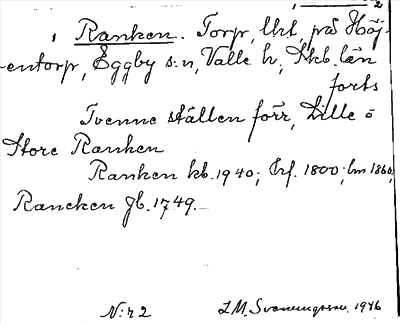 Ranken. Torp, lht, på Höj-
entorp, Eggby s:n, Valle h, Skb. län
forts
Tvenne ställen förr, Lille o
Store Ranken
Ranken kb. 1940; hf. 1800; lm 1860,
Rancken jb. 1749.
N:r 2 L.M. Svenungsson, 1946